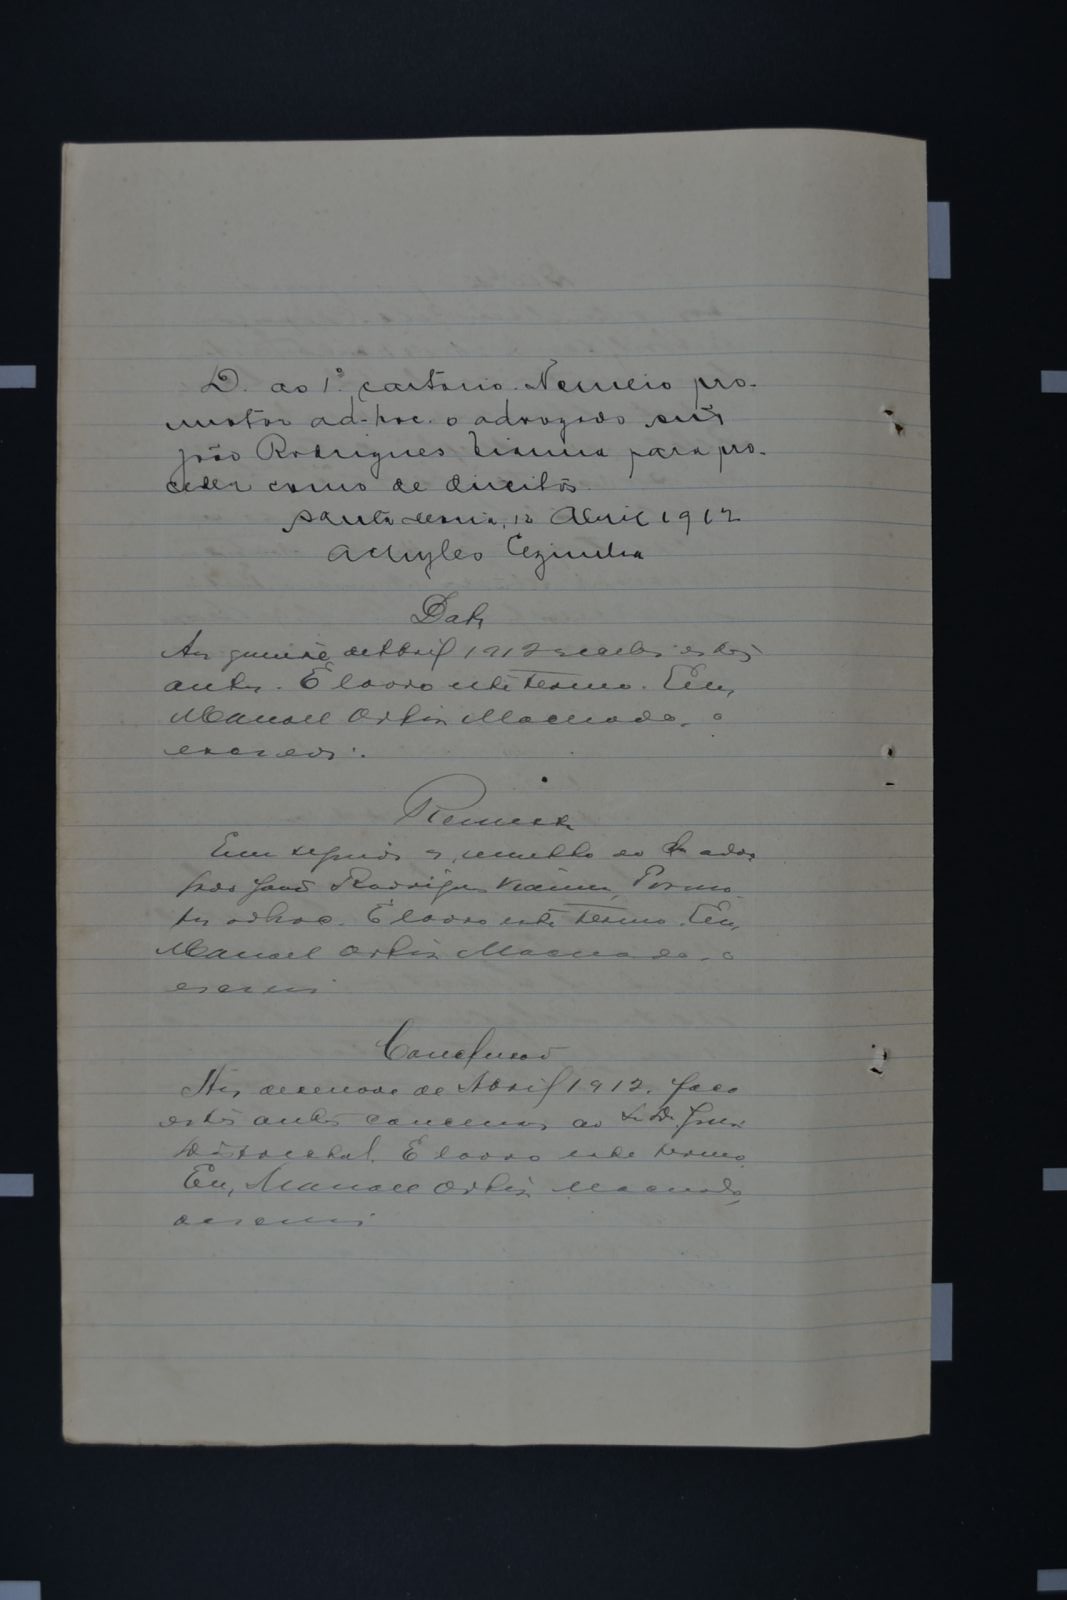 D. ao 1º cartorio. Nomeio pro-
motor ad-hoc o advogado snr
João Rodrigues Vianna para pro-
ceder como de direito.
Santa Maria, 12 Abril 1912
Achyles Cezimbra
Data
Aos quinze de Abril 1912 recebi estes
autos. E lavro este termo. Eu,
Manoel Ortiz Machado, o
escrevi.
Remessa
Em seguida os remetto ao advo
gado João Rodrigues Vianna, Promo
tor adhoc. E lavro este termo. Eu,
Manoel Ortiz Machado, o
escrevi
Conclusão
Aos desenove de Abril 1912, faço
estes autos conclusos ao Sr. Dr. Juiz
Districtal. E lavro este termo.
Eu, Manoel Ortiz Machado,
o escrevi